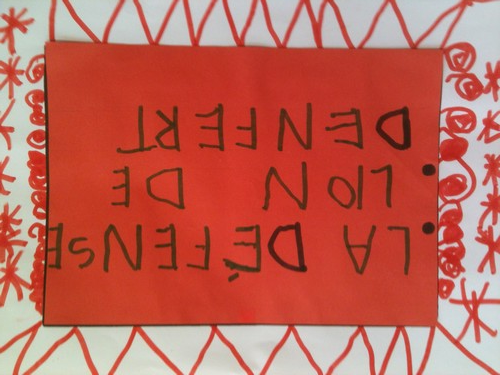 LA DÉFENSE
LION DE
DENFERT